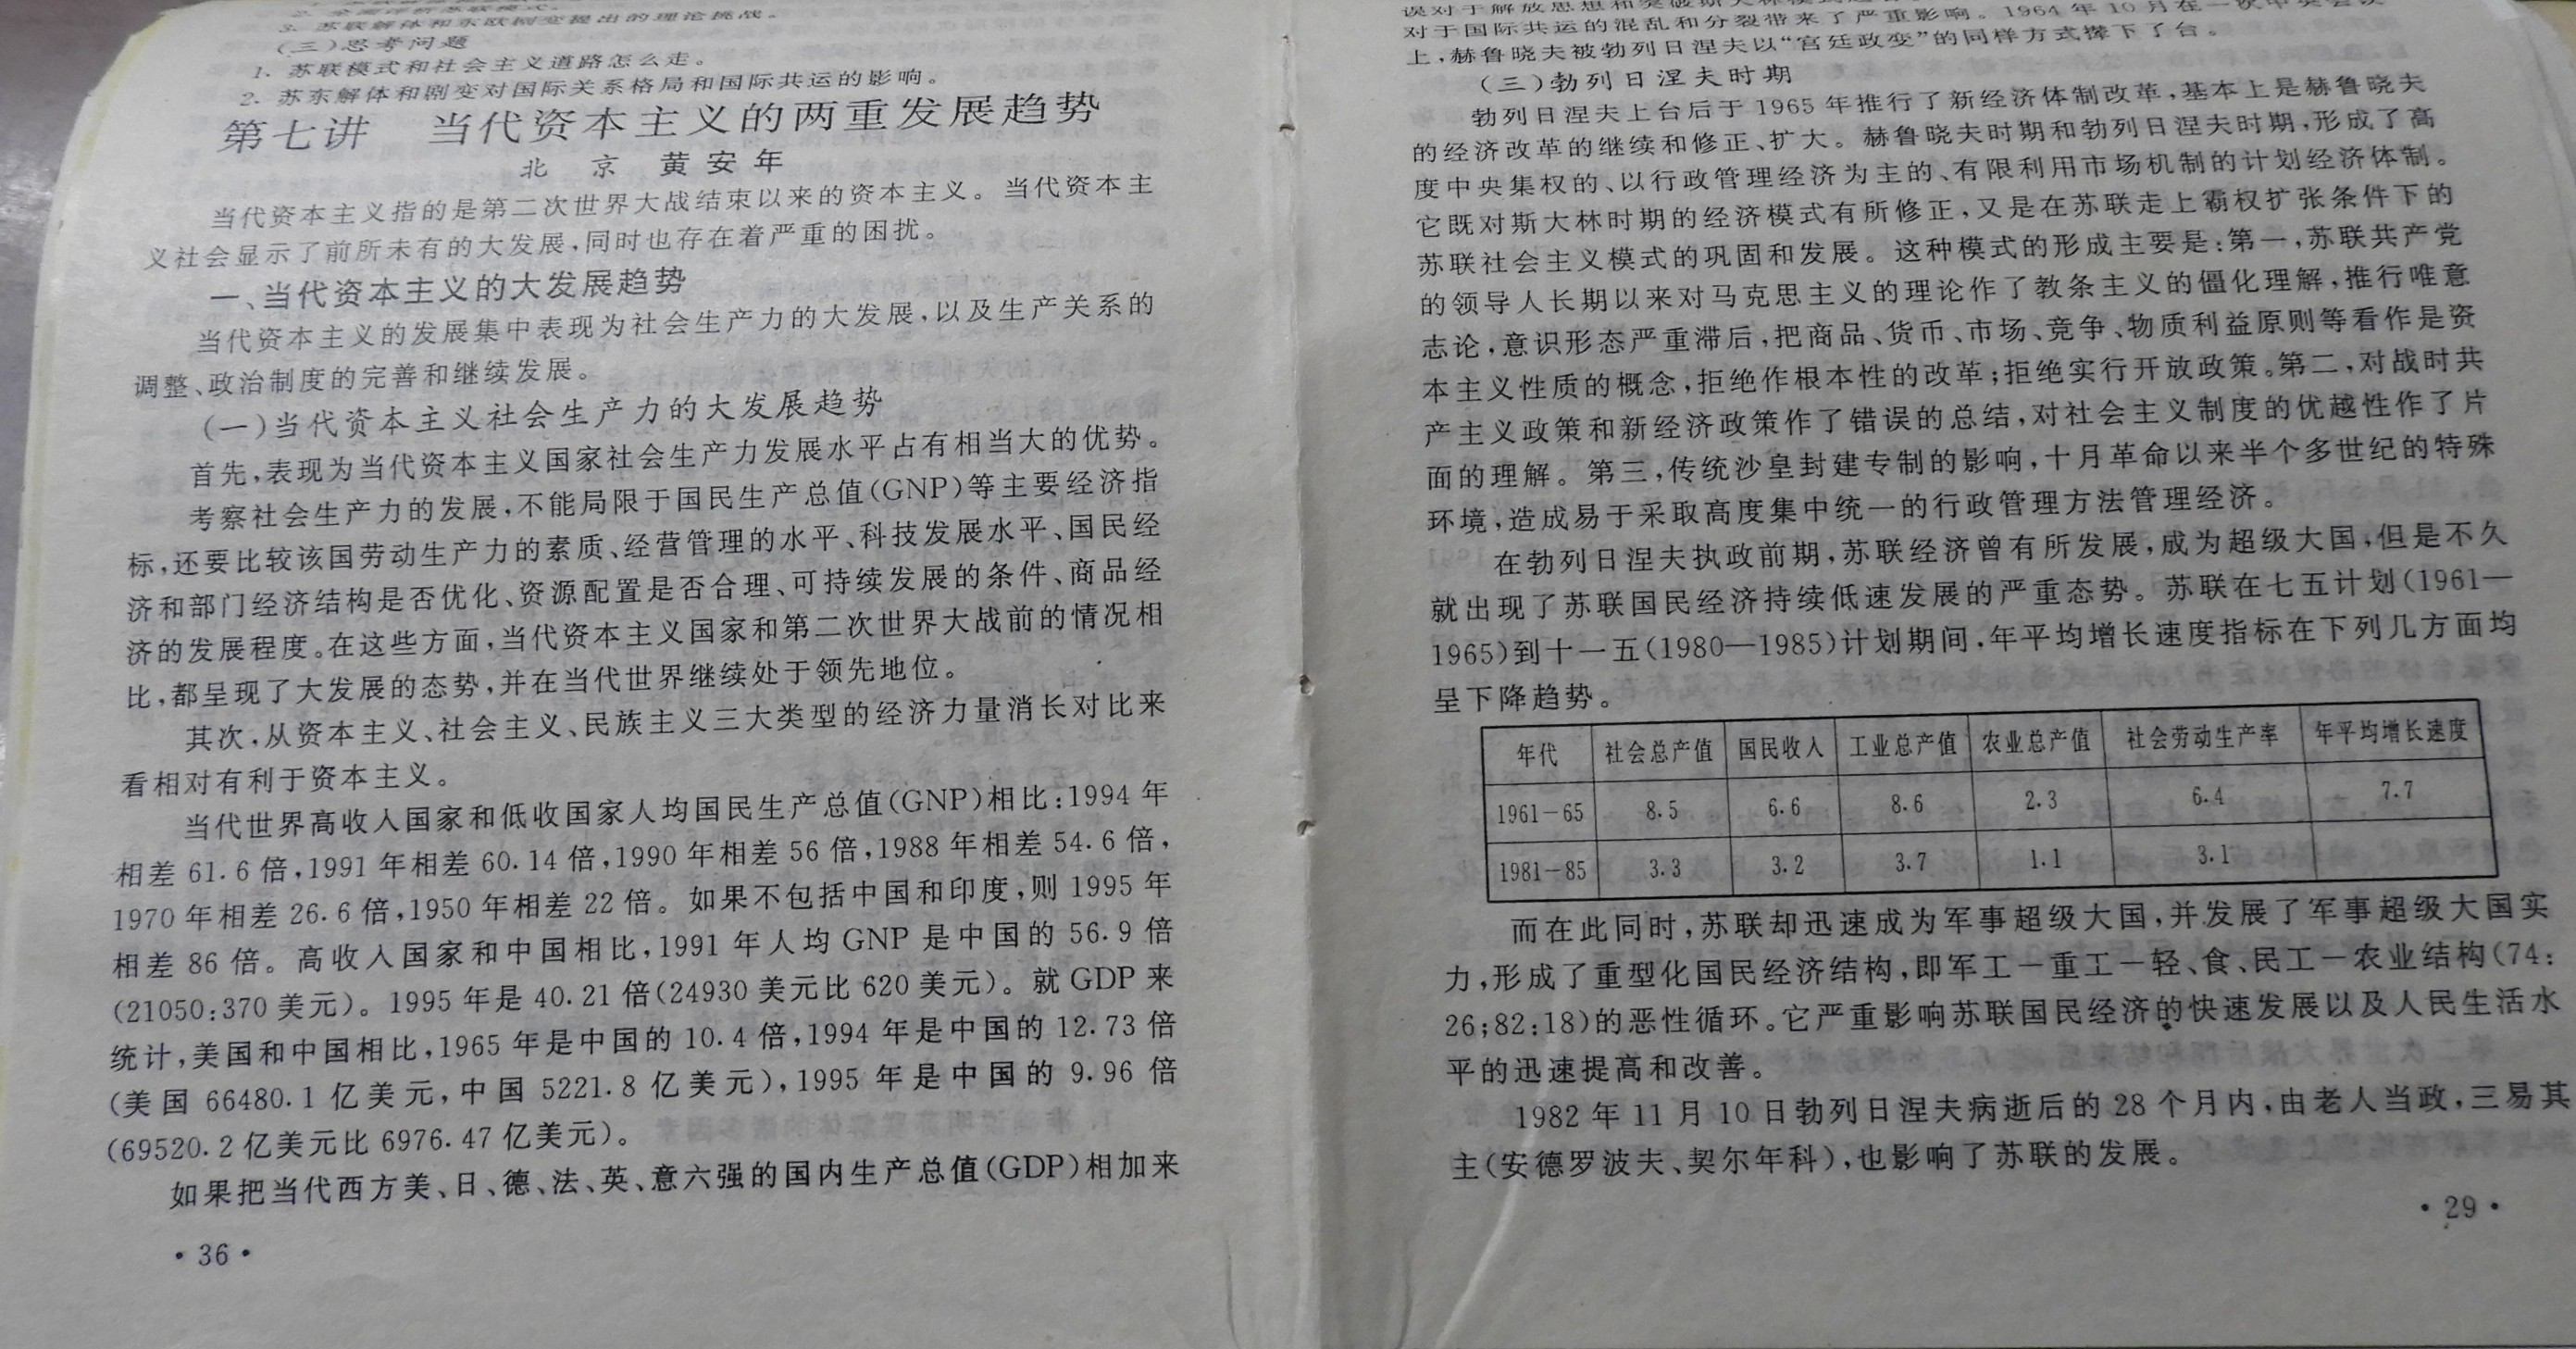 2. 全面评析苏联模式。
3. 苏联解体和东欧剧变提出的理论挑战。
(三)思考问题
1. 苏联模式和社会主义道路怎么走。
2. 苏东解体和剧变对国际关系格局和国际共运的影响。
第七讲 当代资本主义的两重发展趋势
北 京 黄安年
当代资本主义指的是第二次世界大战结束以来的资本主义。当代资本主
义社会显示了前所未有的大发展,同时也存在着严重的困扰。
一、当代资本主义的大发展趋势
当代资本主义的发展集中表现为社会生产力的大发展,以及生产关系的
调整、政治制度的完善和继续发展。
(一)当代资本主义社会生产力的大发展趋势
首先,表现为当代资本主义国家社会生产力发展水平占有相当大的优势。
考察社会生产力的发展,不能局限于国民生产总值(GNP)等主要经济指
标,还要比较该国劳动生产力的素质、经营管理的水平、科技发展水平、国民经
济和部门经济结构是否优化、资源配置是否合理、可持续发展的条件、商品经
济的发展程度。在这些方面,当代资本主义国家和第二次世界大战前的情况相
比,都呈现了大发展的态势,并在当代世界继续处于领先地位。
其次,从资本主义、社会主义、民族主义三大类型的经济力量消长对比来
看相对有利于资本主义。
当代世界高收入国家和低收国家人均国民生产总值(GNP)相比:1994年
相差61.6倍,1991年相差60.14倍,1990年相差56倍,1988年相差54.6倍,
1970年相差26.6倍,1950年相差22倍。如果不包括中国和印度,则1995年
相差86倍。高收入国家和中国相比,1991年人均GNP是中国的56.9倍
(21050:370美元)。1995年是40.21倍(24930美元比620美元)。就GDP来
统计,美国和中国相比,1965年是中国的10.4倍,1994年是中国的12.73倍
(美国66480.1亿美元,中国5221.8亿美元),1995年是中国的9.96倍
(69520.2亿美元比6976.47亿美元)。
如果把当代西方美、日、德、法、英、意六强的国内生产总值(GDP)相加来
·36·
对于国际共运的混乱和分裂带来了严重影响。1964年10月在一次中央会议
上,赫鲁晓夫被勃列日涅夫以“宫廷政变”的同样方式撵下了台。
(三)勃列日涅夫时期
勃列日涅夫上台后于1965年推行了新经济体制改革,基本上是赫鲁晓夫
的经济改革的继续和修正、扩大。赫鲁晓夫时期和勃列日涅夫时期,形成了高
度中央集权的、以行政管理经济为主的、有限利用市场机制的计划经济体制。
它既对斯大林时期的经济模式有所修正,又是在苏联走上霸权扩张条件下的
苏联社会主义模式的巩固和发展。这种模式的形成主要是:第一,苏联共产党
的领导人长期以来对马克思主义的理论作了教条主义的僵化理解,推行唯意
志论,意识形态严重滞后,把商品、货币、市场、竞争、物质利益原则等看作是资
本主义性质的概念,拒绝作根本性的改革;拒绝实行开放政策。第二,对战时共
产主义政策和新经济政策作了错误的总结,对社会主义制度的优越性作了片
面的理解。第三,传统沙皇封建专制的影响,十月革命以来半个多世纪的特殊
环境,造成易于采取高度集中统一的行政管理方法管理经济。
在勃列日涅夫执政前期,苏联经济曾有所发展,成为超级大国,但是不久
就出现了苏联国民经济持续低速发展的严重态势。苏联在七五计划(1961—
1965)到十一五(1980—1985)计划期间,年平均增长速度指标在下列几方面均
呈下降趋势。
年代 社会总产值 国民收入 工业总产值 农业总产值 社会劳动生产率 年平均增长速度
1961-65 8.5 6.6 8.6 2.3 6.4 7.7
1981-85 3.3 3.2 3.7 1.1 3.1
而在此同时,苏联却迅速成为军事超级大国,并发展了军事超级大国实
力,形成了重型化国民经济结构,即军工-重工-轻、食、民工-农业结构(74:
26;82:18)的恶性循环。它严重影响苏联国民经济的快速发展以及人民生活水
平的迅速提高和改善。
1982年11月10日勃列日涅夫病逝后的28个月内,由老人当政,三易其
主(安德罗波夫、契尔年科),也影响了苏联的发展。
·29·